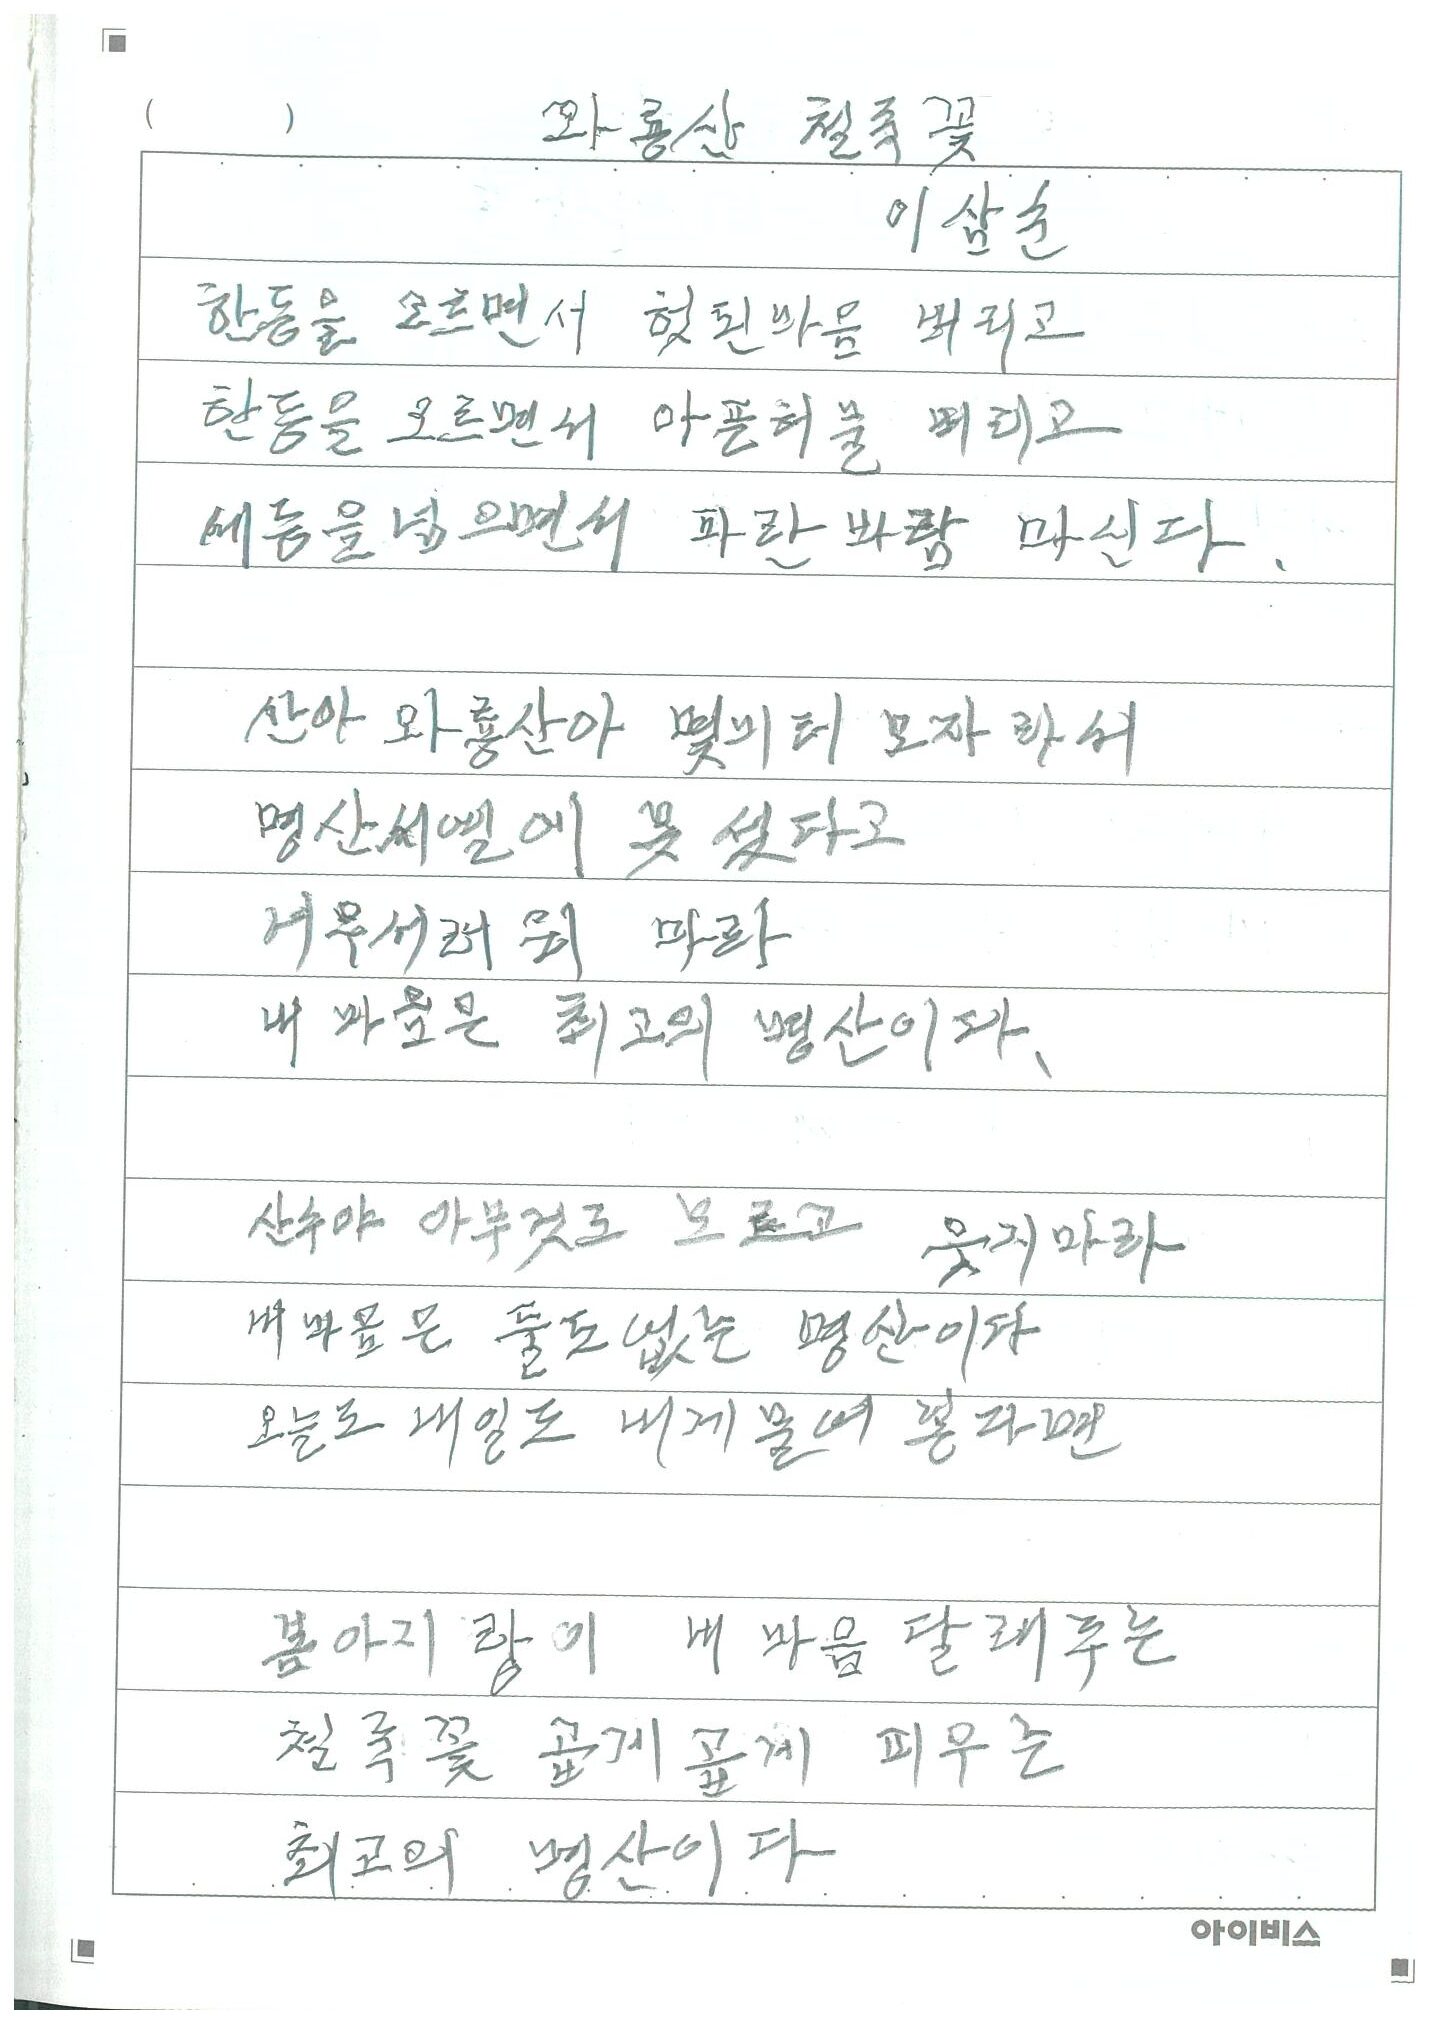 ( ) 와룡산 철죽꽃
이삼순
한등을 오르면서 헛된마음 버리고
한등을 오르면서 아픈허물 버리고
세등을넘으면서 파란바람 마신다.
산아 와룡산아 몇미터 모자라서
명산서열에 못 섰다고
서무서러워 마라
내 마음은 최고의 명산이다.
산수야 아무것도 모르고 웃지마라
내마음은 둘도없는 명산이다
오늘도 내일도 내게물어 본다면
봄아지랑이 내 마음 달래주는
철죽꽃 곱게곱게 피우는
최고의 명산이다
아이비스